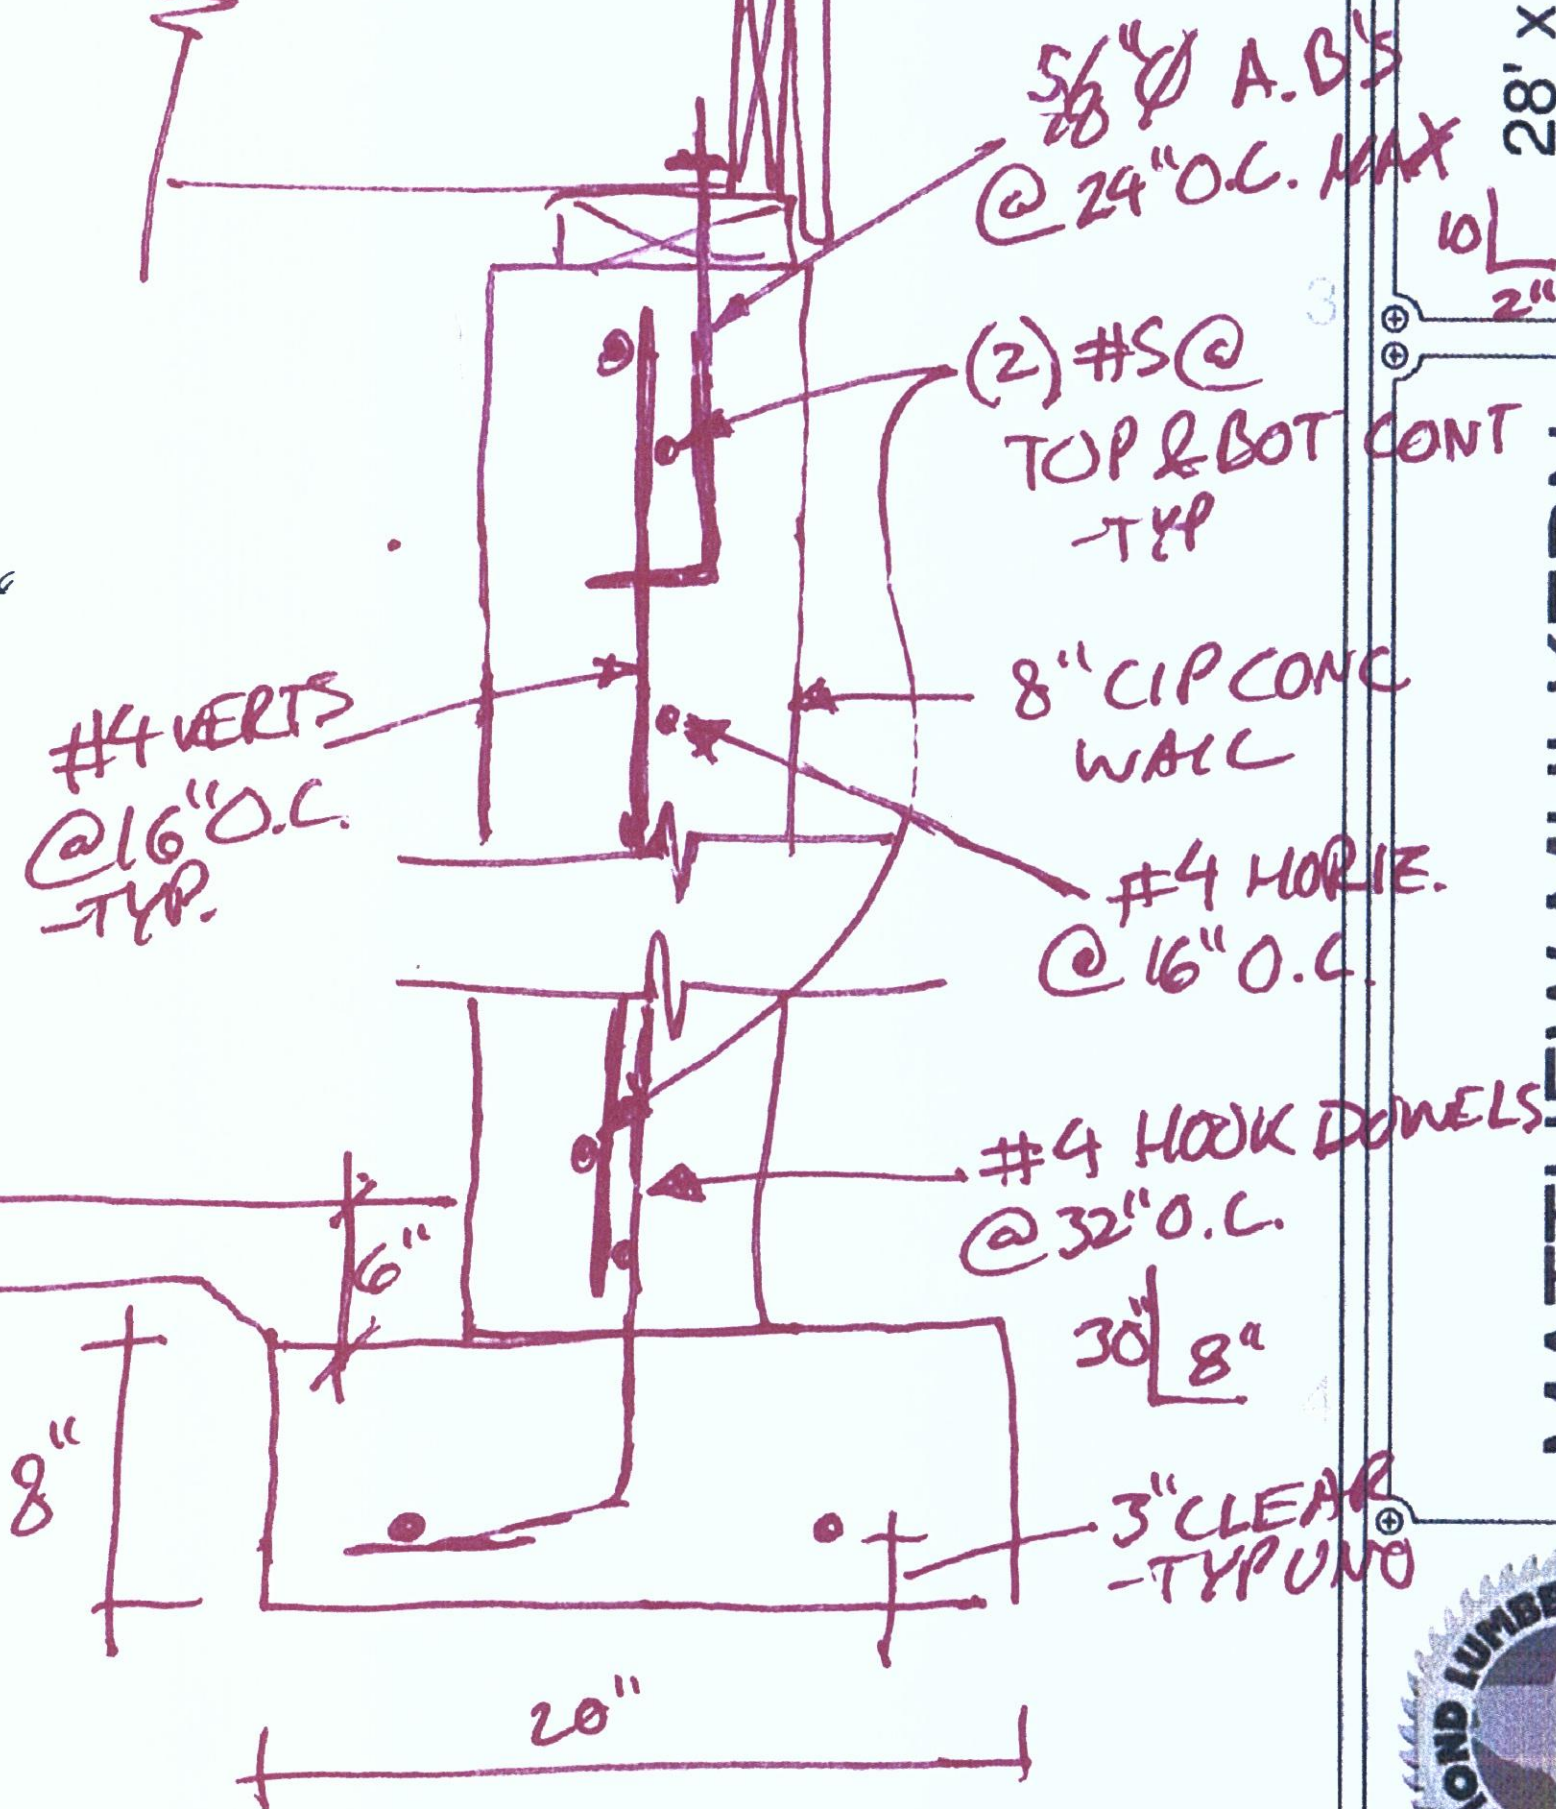 5/8"Ø A.B'S
@ 24" O.C. MAX
28' x
10
2"
3
(2) #5 @
TOP & BOT CONT
-TYP
8" CIP CONC
WALL
#4 VERTS
@ 16" O.C.
-TYP.
#4 HORIZ.
@ 16" O.C.
#4 HOOK DOWELS
@ 32" O.C.
30" 8"
6"
8"
3" CLEAR
-TYP UNO
4
20"
OND LUMBE